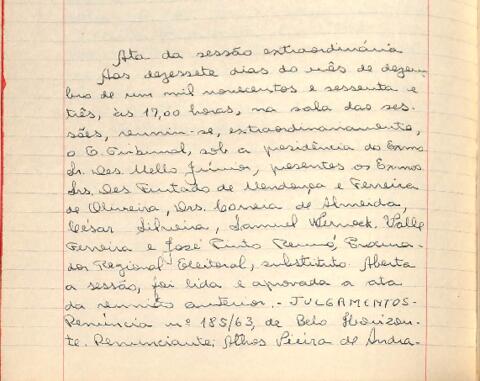 Ata da sessão extraordinária
Aos dezessete dias do mês de dezem-
bro de um mil novecentos e sessenta e
três, às 17,00 horas, na sala das ses-
sões, reuniu-se, extraordinariamente,
o E. Tribunal, sob a presidência do Exmo
Sr. Des. Mello Júnior, presentes os Exmos
Srs. Des. Furtado de Mendonça e Ferreira
de Oliveira, Drs. Correia de Almeida,
César Silveira, Samuel Werneck, Valle
Ferreira e José Pinto Renó, Procura-
dor Regional Eleitoral, substituto. Aberta
a sessão, foi lida e aprovada a ata
da reunião anterior. - JULGAMENTOS -
Renúncia nº 185/63, de Belo Horizon-
te. Renunciante: Athos Vieira de Andra-